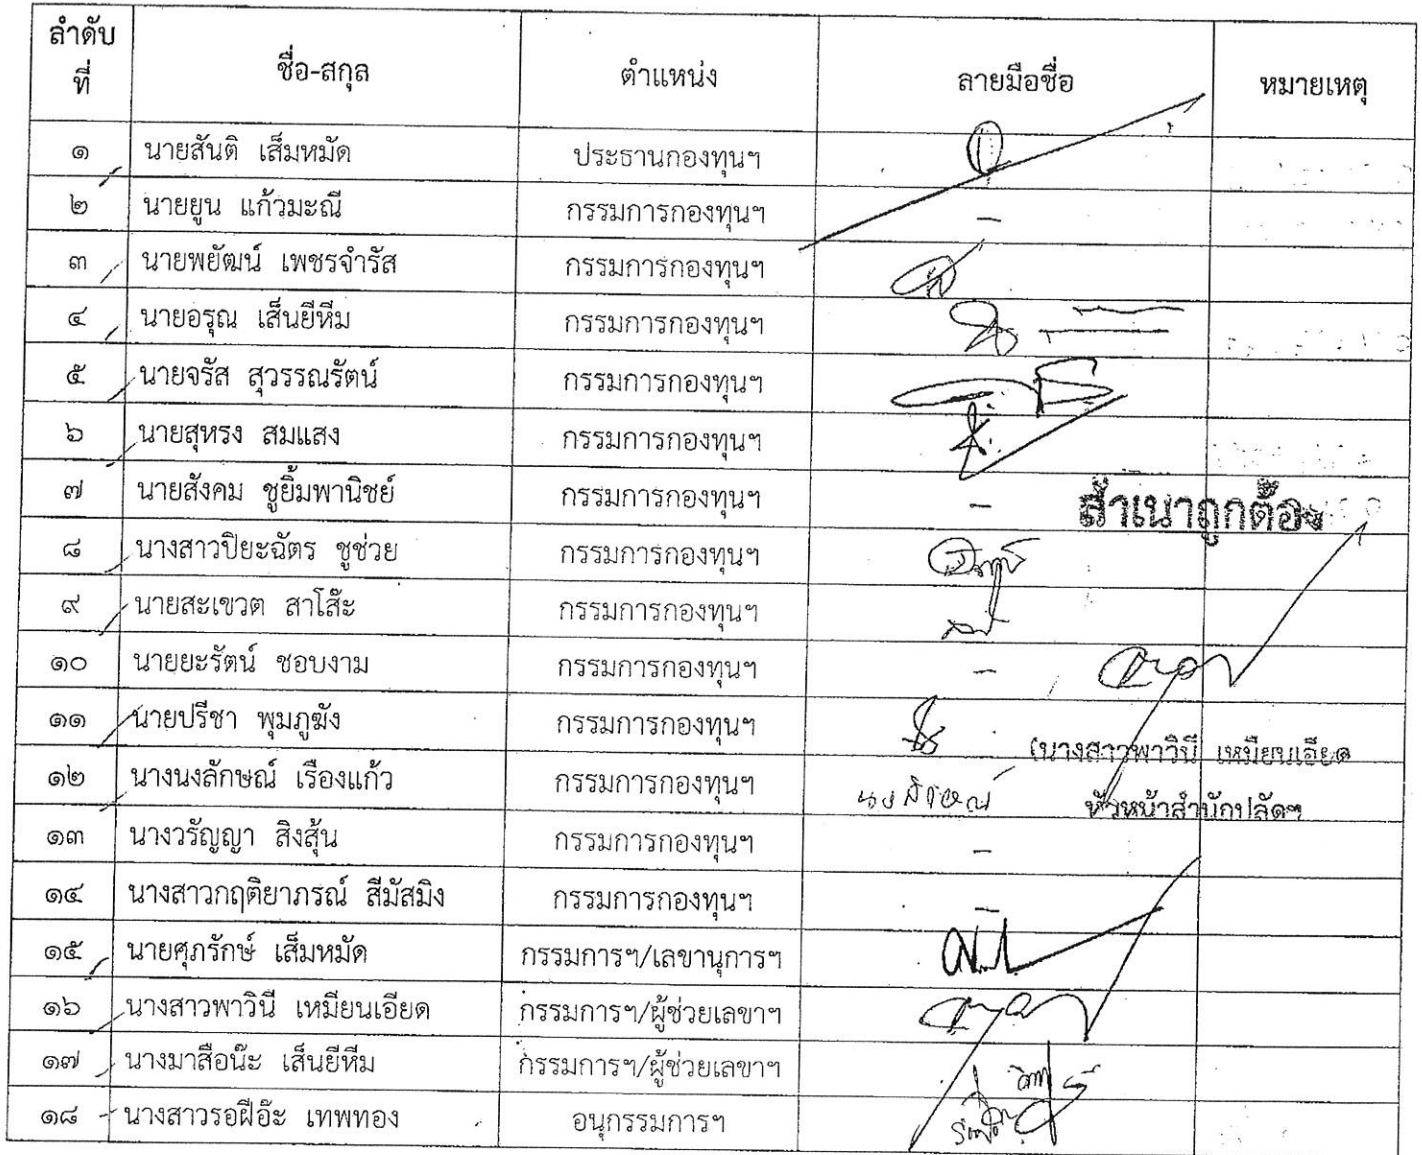 ลำดับที่ ชื่อ-สกุล ตำแหน่ง ลายมือชื่อ หมายเหตุ
๑ นายสันติ เส็มหมัด ประธานกองทุนฯ
๒ นายยูน แก้วมะณี กรรมการกองทุนฯ -
๓ นายพยัฒน์ เพชรจำรัส กรรมการกองทุนฯ
๔ นายอรุณ เส็นยีหีม กรรมการกองทุนฯ
๕ นายจรัส สุวรรณรัตน์ กรรมการกองทุนฯ
๖ นายสุหรง สมแสง กรรมการกองทุนฯ
๗ นายสังคม ชูยิ้มพานิชย์ กรรมการกองทุนฯ -
สำเนาถูกต้อง
๘ นางสาวปิยะฉัตร ชูช่วย กรรมการกองทุนฯ
๙ นายสะเขวต สาโส๊ะ กรรมการกองทุนฯ
๑๐ นายยะรัตน์ ชอบงาม กรรมการกองทุนฯ -
๑๑ นายปรีชา พุมภูฆัง กรรมการกองทุนฯ
(นางสาวพาวินี เหมียนเอียด
๑๒ นางนงลักษณ์ เรืองแก้ว กรรมการกองทุนฯ นงลักษณ์
หัวหน้าสำนักปลัดฯ
๑๓ นางวรัญญา สิงสุ้น กรรมการกองทุนฯ -
๑๔ นางสาวกฤติยาภรณ์ สีมัสมิง กรรมการกองทุนฯ -
๑๕ นายศุภรักษ์ เส็มหมัด กรรมการฯ/เลขานุการฯ
๑๖ นางสาวพาวินี เหมียนเอียด กรรมการฯ/ผู้ช่วยเลขาฯ
๑๗ นางมาสือน๊ะ เส็นยีหีม กรรมการฯ/ผู้ช่วยเลขาฯ
๑๘ นางสาวรอฝีอ๊ะ เทพทอง อนุกรรมการฯ